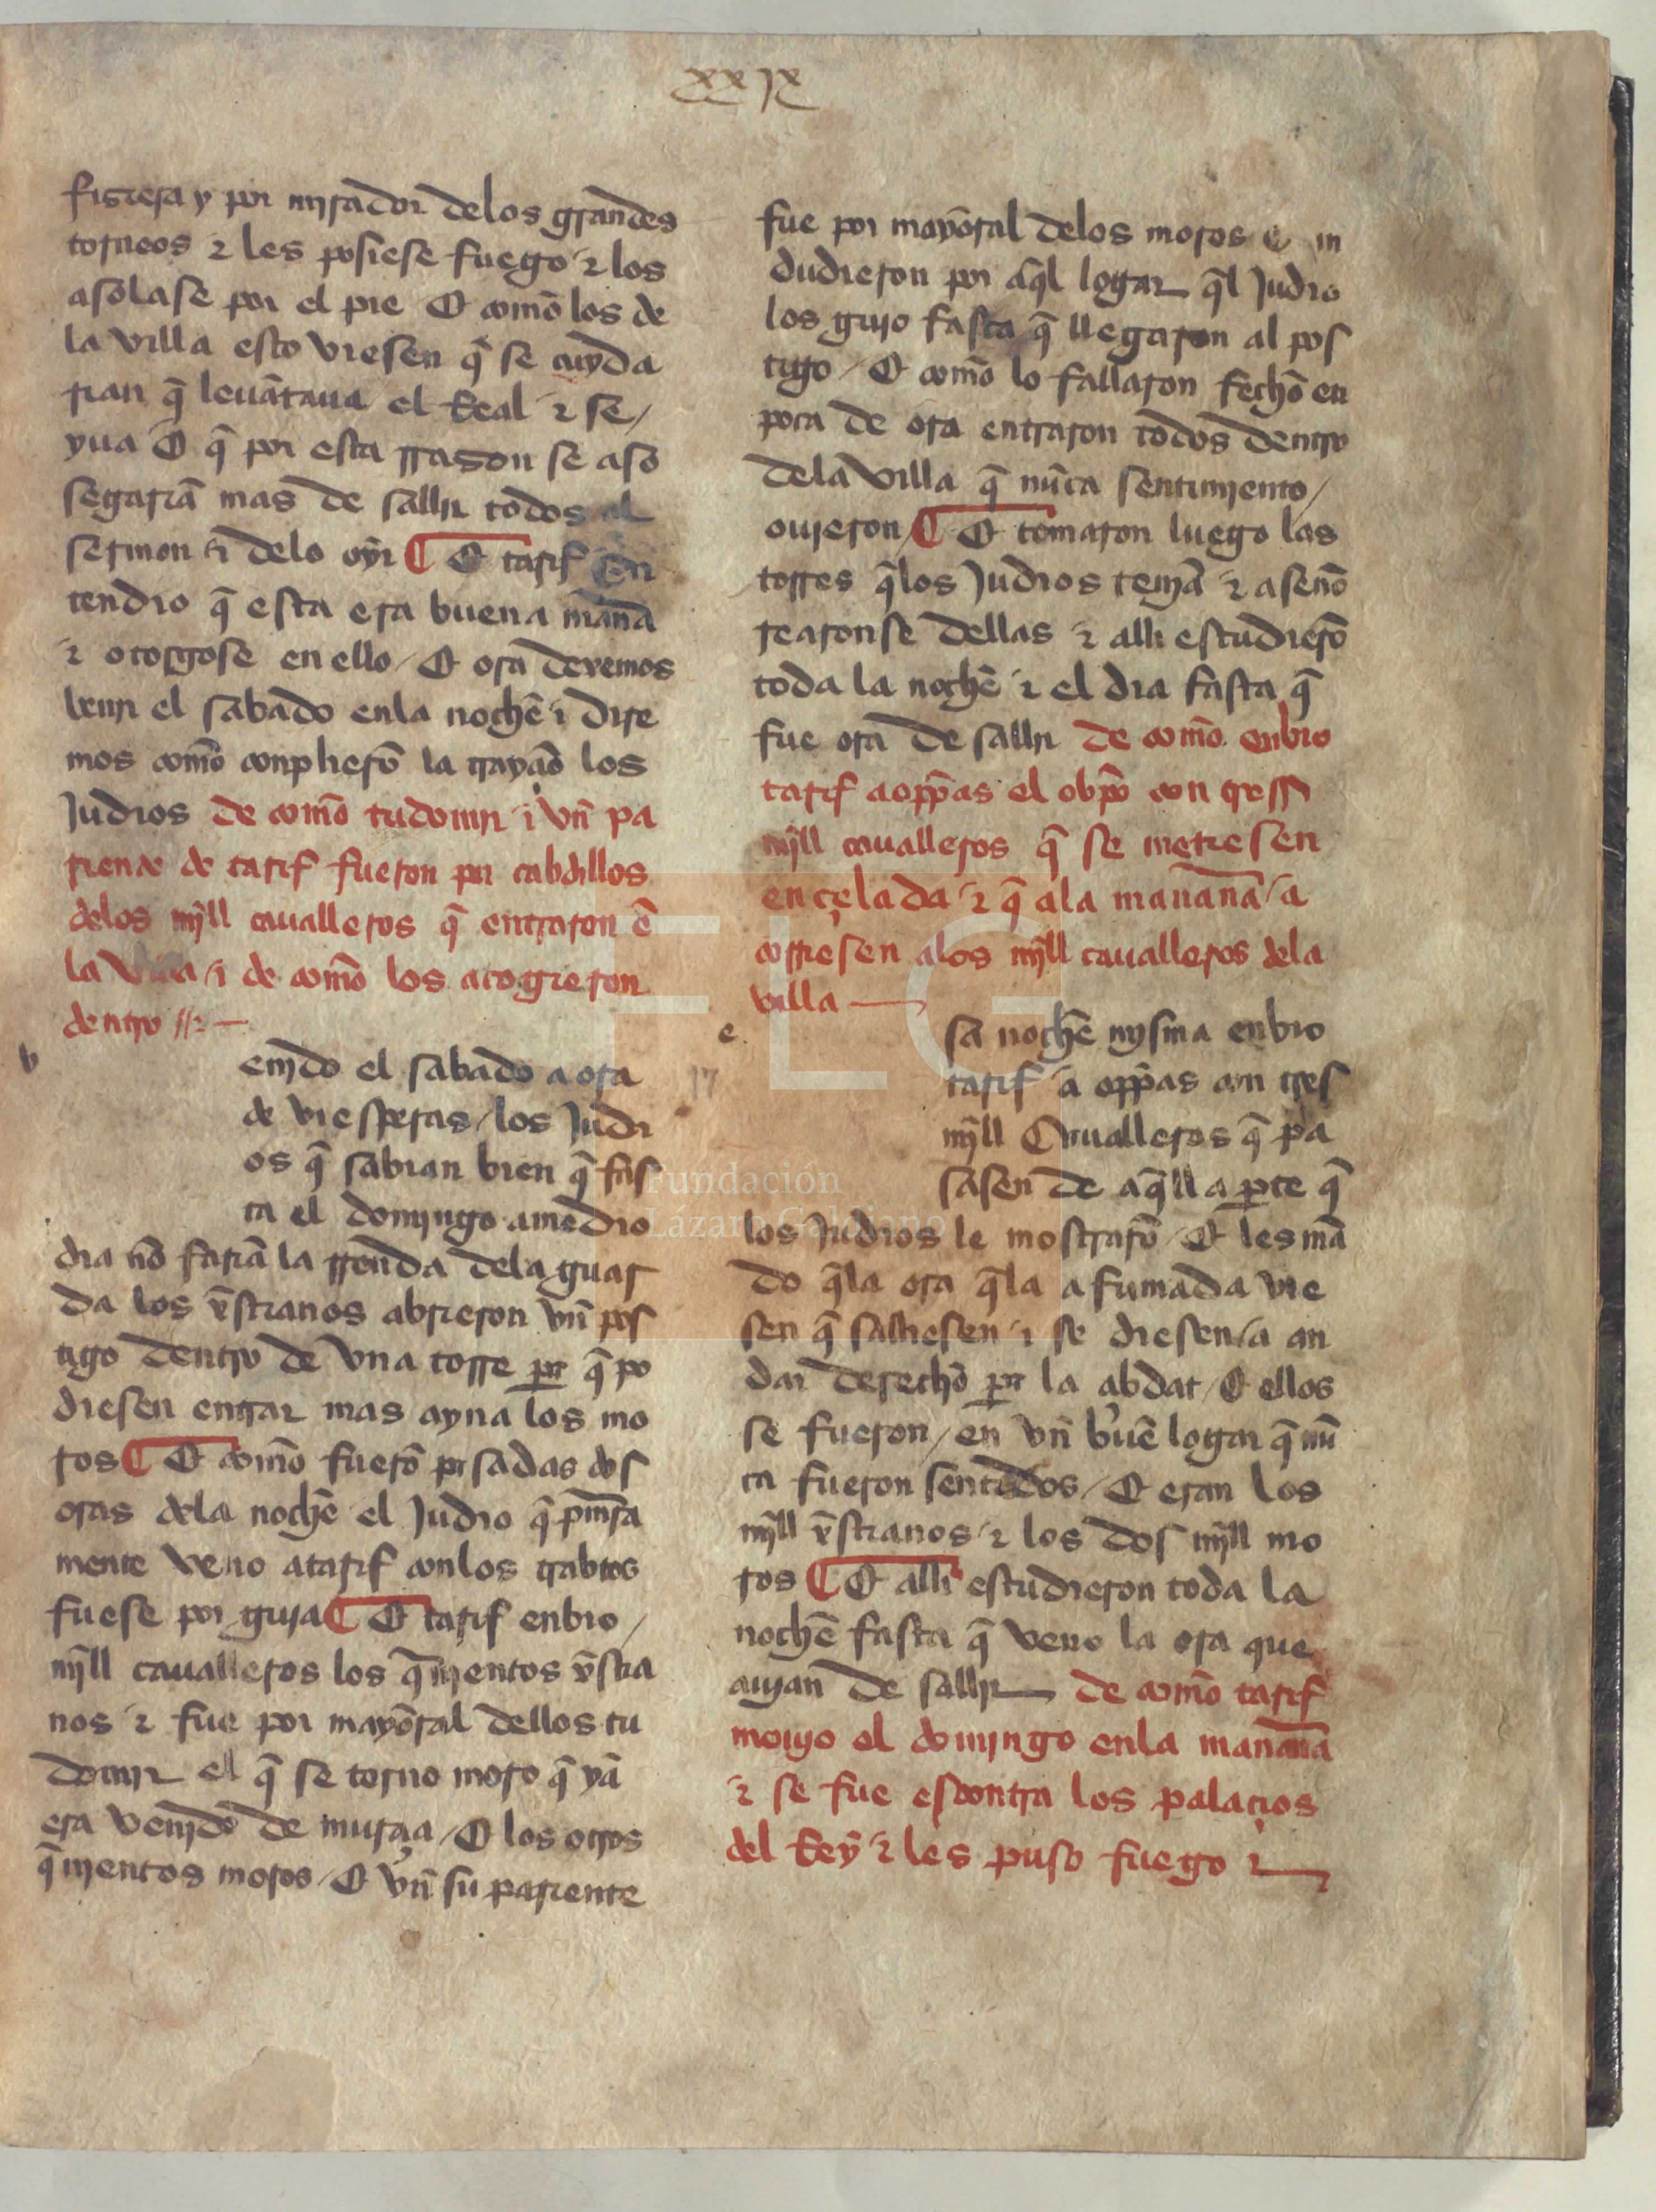 xxix
fisiera y por mirador delos grandes
torneos & les posiese fuego & los
asolase por el pie E com̄o los de
la villa esto viesen q̄ se cuyda
rian q̄ leuātaua el Real & se /
yua E q̄ por esta rrason se aso
segariā mas de sallir todos al
sermon & delo oyr ¶ E tarif en
tendio q̄ esta era buena man̄a
& otorgose en ello / E ora dexemos
benir el sabado enla noch̄e & dire
mos com̄o conplierō la trayçiō los
Judios de com̄o tudomir & vn̄ pa
riente de tarif fueron por cabdillos
delos mj̄ll caualleros q̄ entraron ē
la villa / & de com̄o los acogieron
dentro //& —
v
enjdo el sabado a ora
de viesperas / los Judi
os q̄ sabian bien q̄ fas
ta el domjngo amedio
dia nō fariā la rronda dela guar
da los xp̄stianos abrieron vn̄ pos
tigo dentro de vna torre por q̄ po
diesen entrar mas ayna los mo
ros ¶ E com̄o fuerō pasadas dos
oras dela noch̄e el Judio q̄ pm̄era
mente veno atarif conlos trabtos
fuese por guia ¶ E tarif enbio /
mj̄ll caualleros los q̄njentos xp̄stia
nos & fue por mayoral dellos tu
domjr el q̄ se torno moro q̄ yā
era venjdo de murçia / E los otros
q̄njentos moros / E vn̄ su pariente
fue por mayoral delos moros E an
dudieron por aq̄l logar q̄l Judio
los guio fasta q̄ llegaron al pos
tigo / E com̄o lo fallaron fech̄o en
poca de ora entraron todos dentro
dela villa q̄ nūca sentimiento /
ouieron / ¶ E tomaron luego las
torres q̄los Judios tenjā & aseño
rearonse dellas & alli estudierō
toda la noch̄e & el dia fasta q̄
fue ora de sallir de com̄o enbio
tarif aopp̄as el obp̄o con tress
mj̄ll caualleros q̄ se metiesen
en çelada / & q̄ ala man̄ana / a
corriesen alos mj̄ll caualleros dela
villa —
e
sa noch̄e mysma enbio
tarif / a opp̄as con tres
mj̄ll Caualleros q̄ pa
sasen de aq̄lla parte q̄
los Judios le mostrarō / E les mā
do q̄la ora q̄la afumada vie
sen q̄ salliesen & se diesen / a an
dar derech̄o por la abdat / E ellos
se fueron / en vn̄ buē logar q̄ nū
ca fueron sentidos / E eran los
mj̄ll xp̄stianos / & los dos mj̄ll mo
ros ¶ E alli estudieron toda la
noch̄e fasta q̄ veno la ora que
auyan de sallir — de com̄o tarif
mouyo el domingo enla man̄ana
& se fue escontra los palaçios
del Rey & les puso fuego &
Fundación
Lázaro Galdiano
FLG